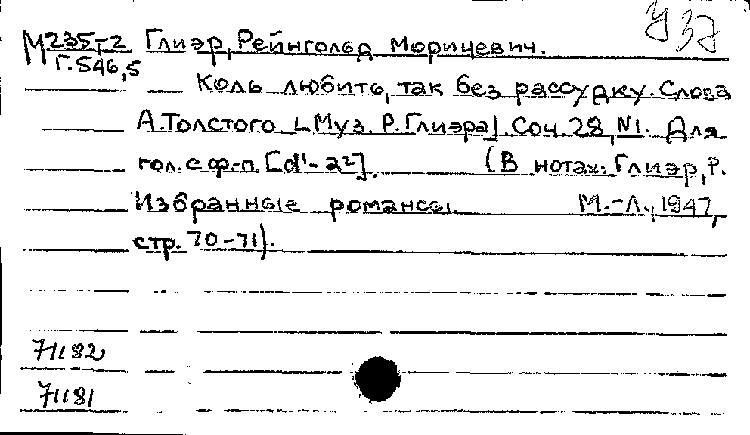 У 37
М235-2 Глиэр, Рейнгольд Морицевич.
Г.546,5
Коль любить, так без рассудку. Слова
А.Толстого [Муз. Р.Глиэра]. Соч. 28, N1. Для
гол. с ф-п. [d¹-a²]. (В нотах: Глиэр, Р.
Избранные романсы. М.-Л., 1947,
стр. 70-71).
71182
71181